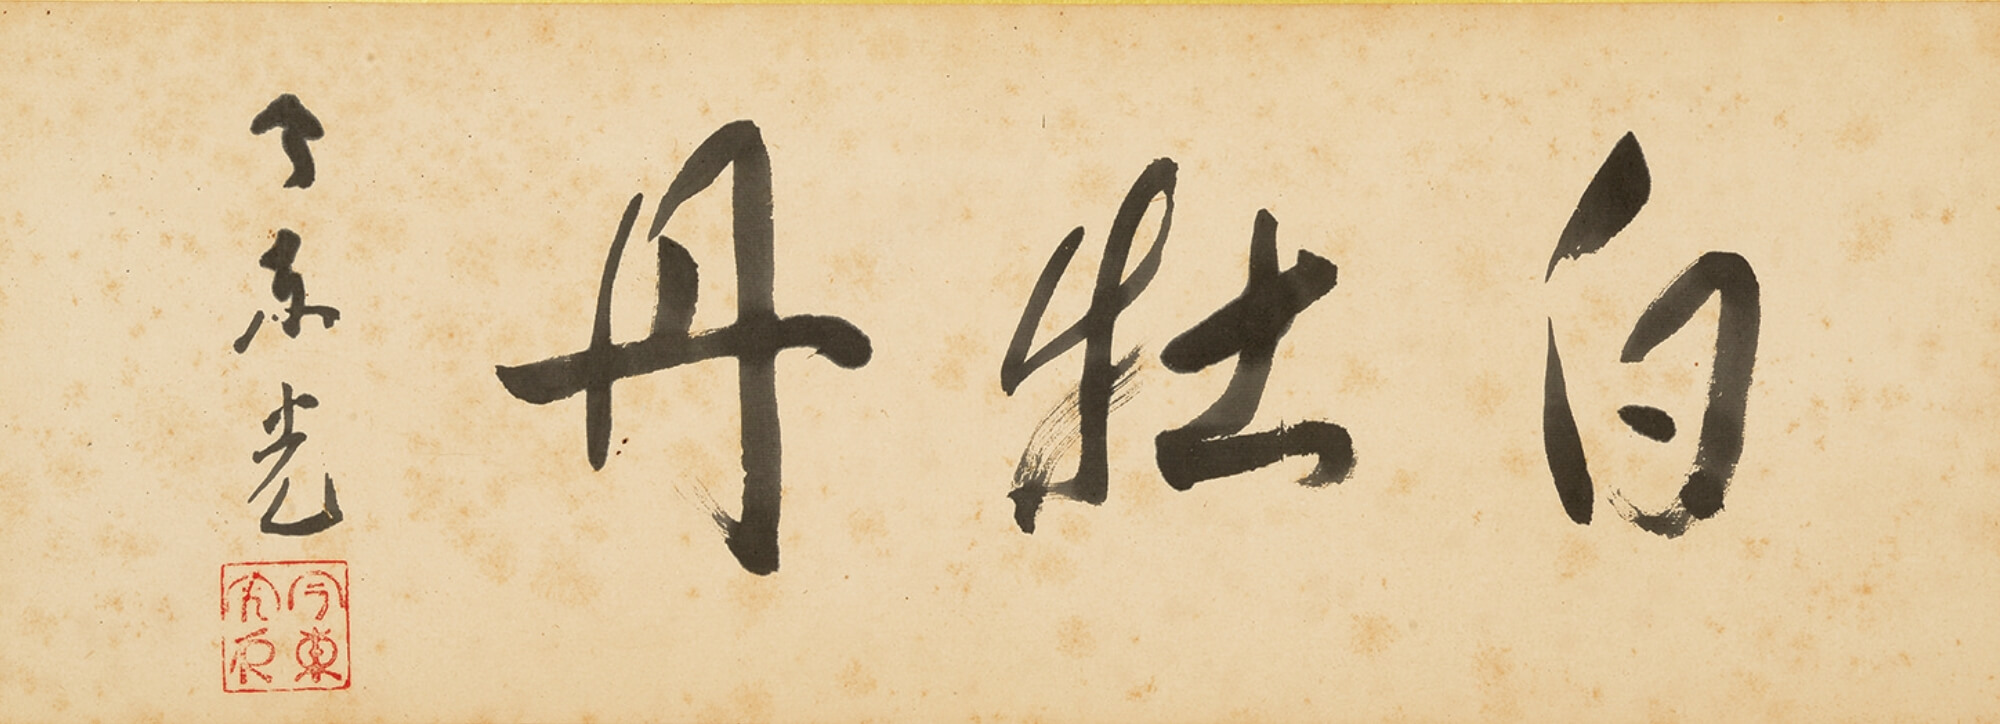 白牡丹
今東光
今東光印